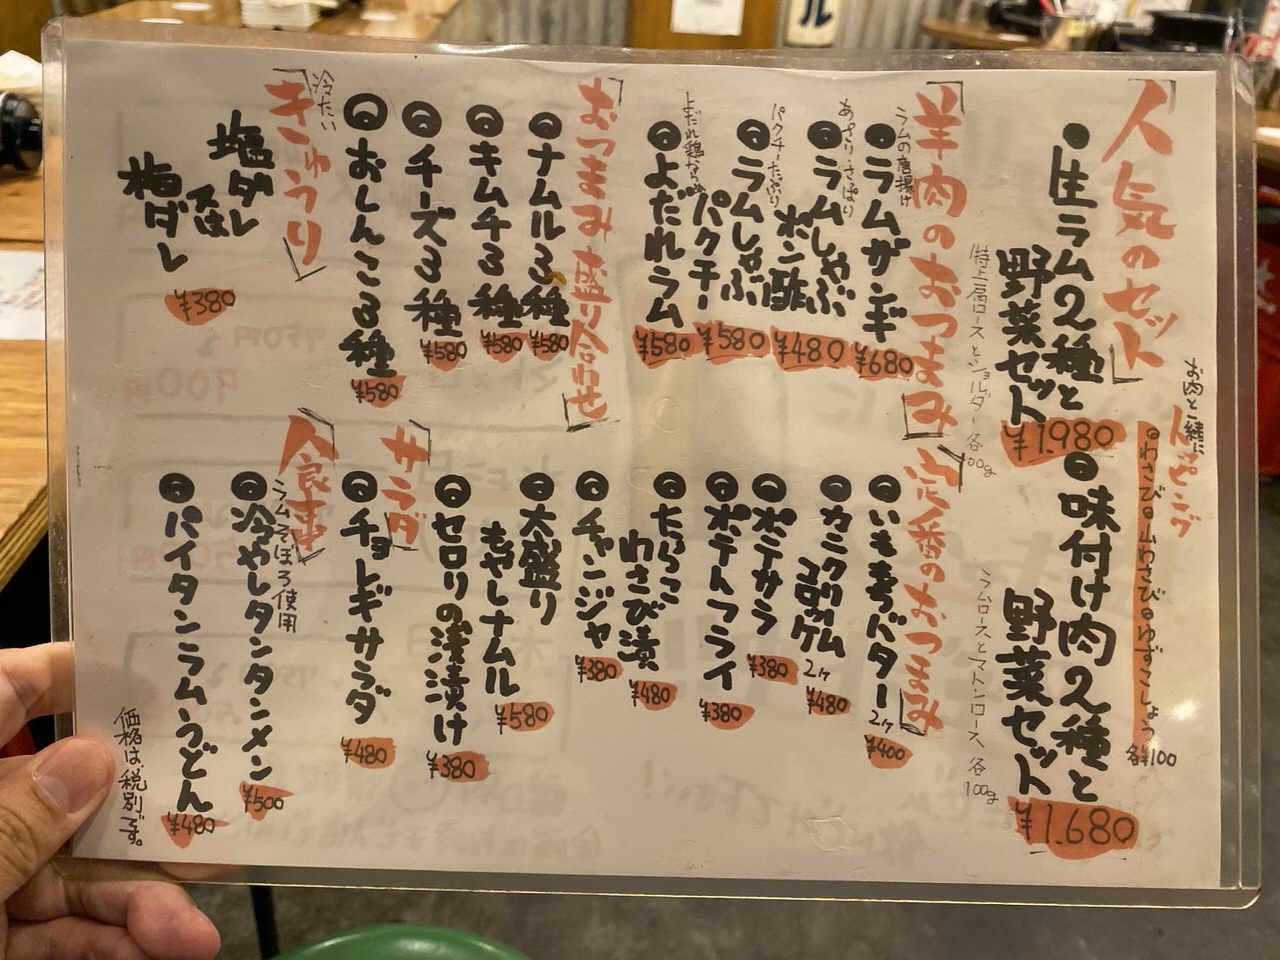 「人気のセット」
●生ラム2種と
野菜セット
¥1.980
特上肩ロースとショルダー 各100g
●味付け肉2種と
野菜セット
¥1.680
ラムロースとマトンロース 各100g
お肉と一緒に
トッピング
●わさび●山わさび●ゆずこしょう
各¥100
「羊肉のおつまみ」
●ラムザンギ
ラムの唐揚げ
¥680
●ラムしゃぶ
ポン酢
あっさり・さっぱり
¥480
●ラムしゃぶ
パクチー
パクチーたっぷり
¥580
●よだれラム
¥580
「おつまみ盛り合わせ」
●ナムル3種
¥580
●キムチ3種
¥580
●チーズ3種
¥580
●おしんこ3種
¥580
冷たい
「きゅうり」
塩ダレ
又は
梅ダレ
¥380
「定番のおつまみ」
●いももちバター2ヶ
¥400
●カニクリーム
コロッケ2ヶ
¥480
●ポテサラ
¥380
●ポテトフライ
¥380
●たらこ
わさび漬
¥480
●チャンジャ
¥380
●大盛り
もやしナムル
¥580
●セロリの浅漬け
¥380
「サラダ」
●チョレギサラダ
¥480
「食事」
ラムそぼろ使用
●冷やしタンタンメン
¥500
●パイタンラムうどん
¥480
価格は税別です。